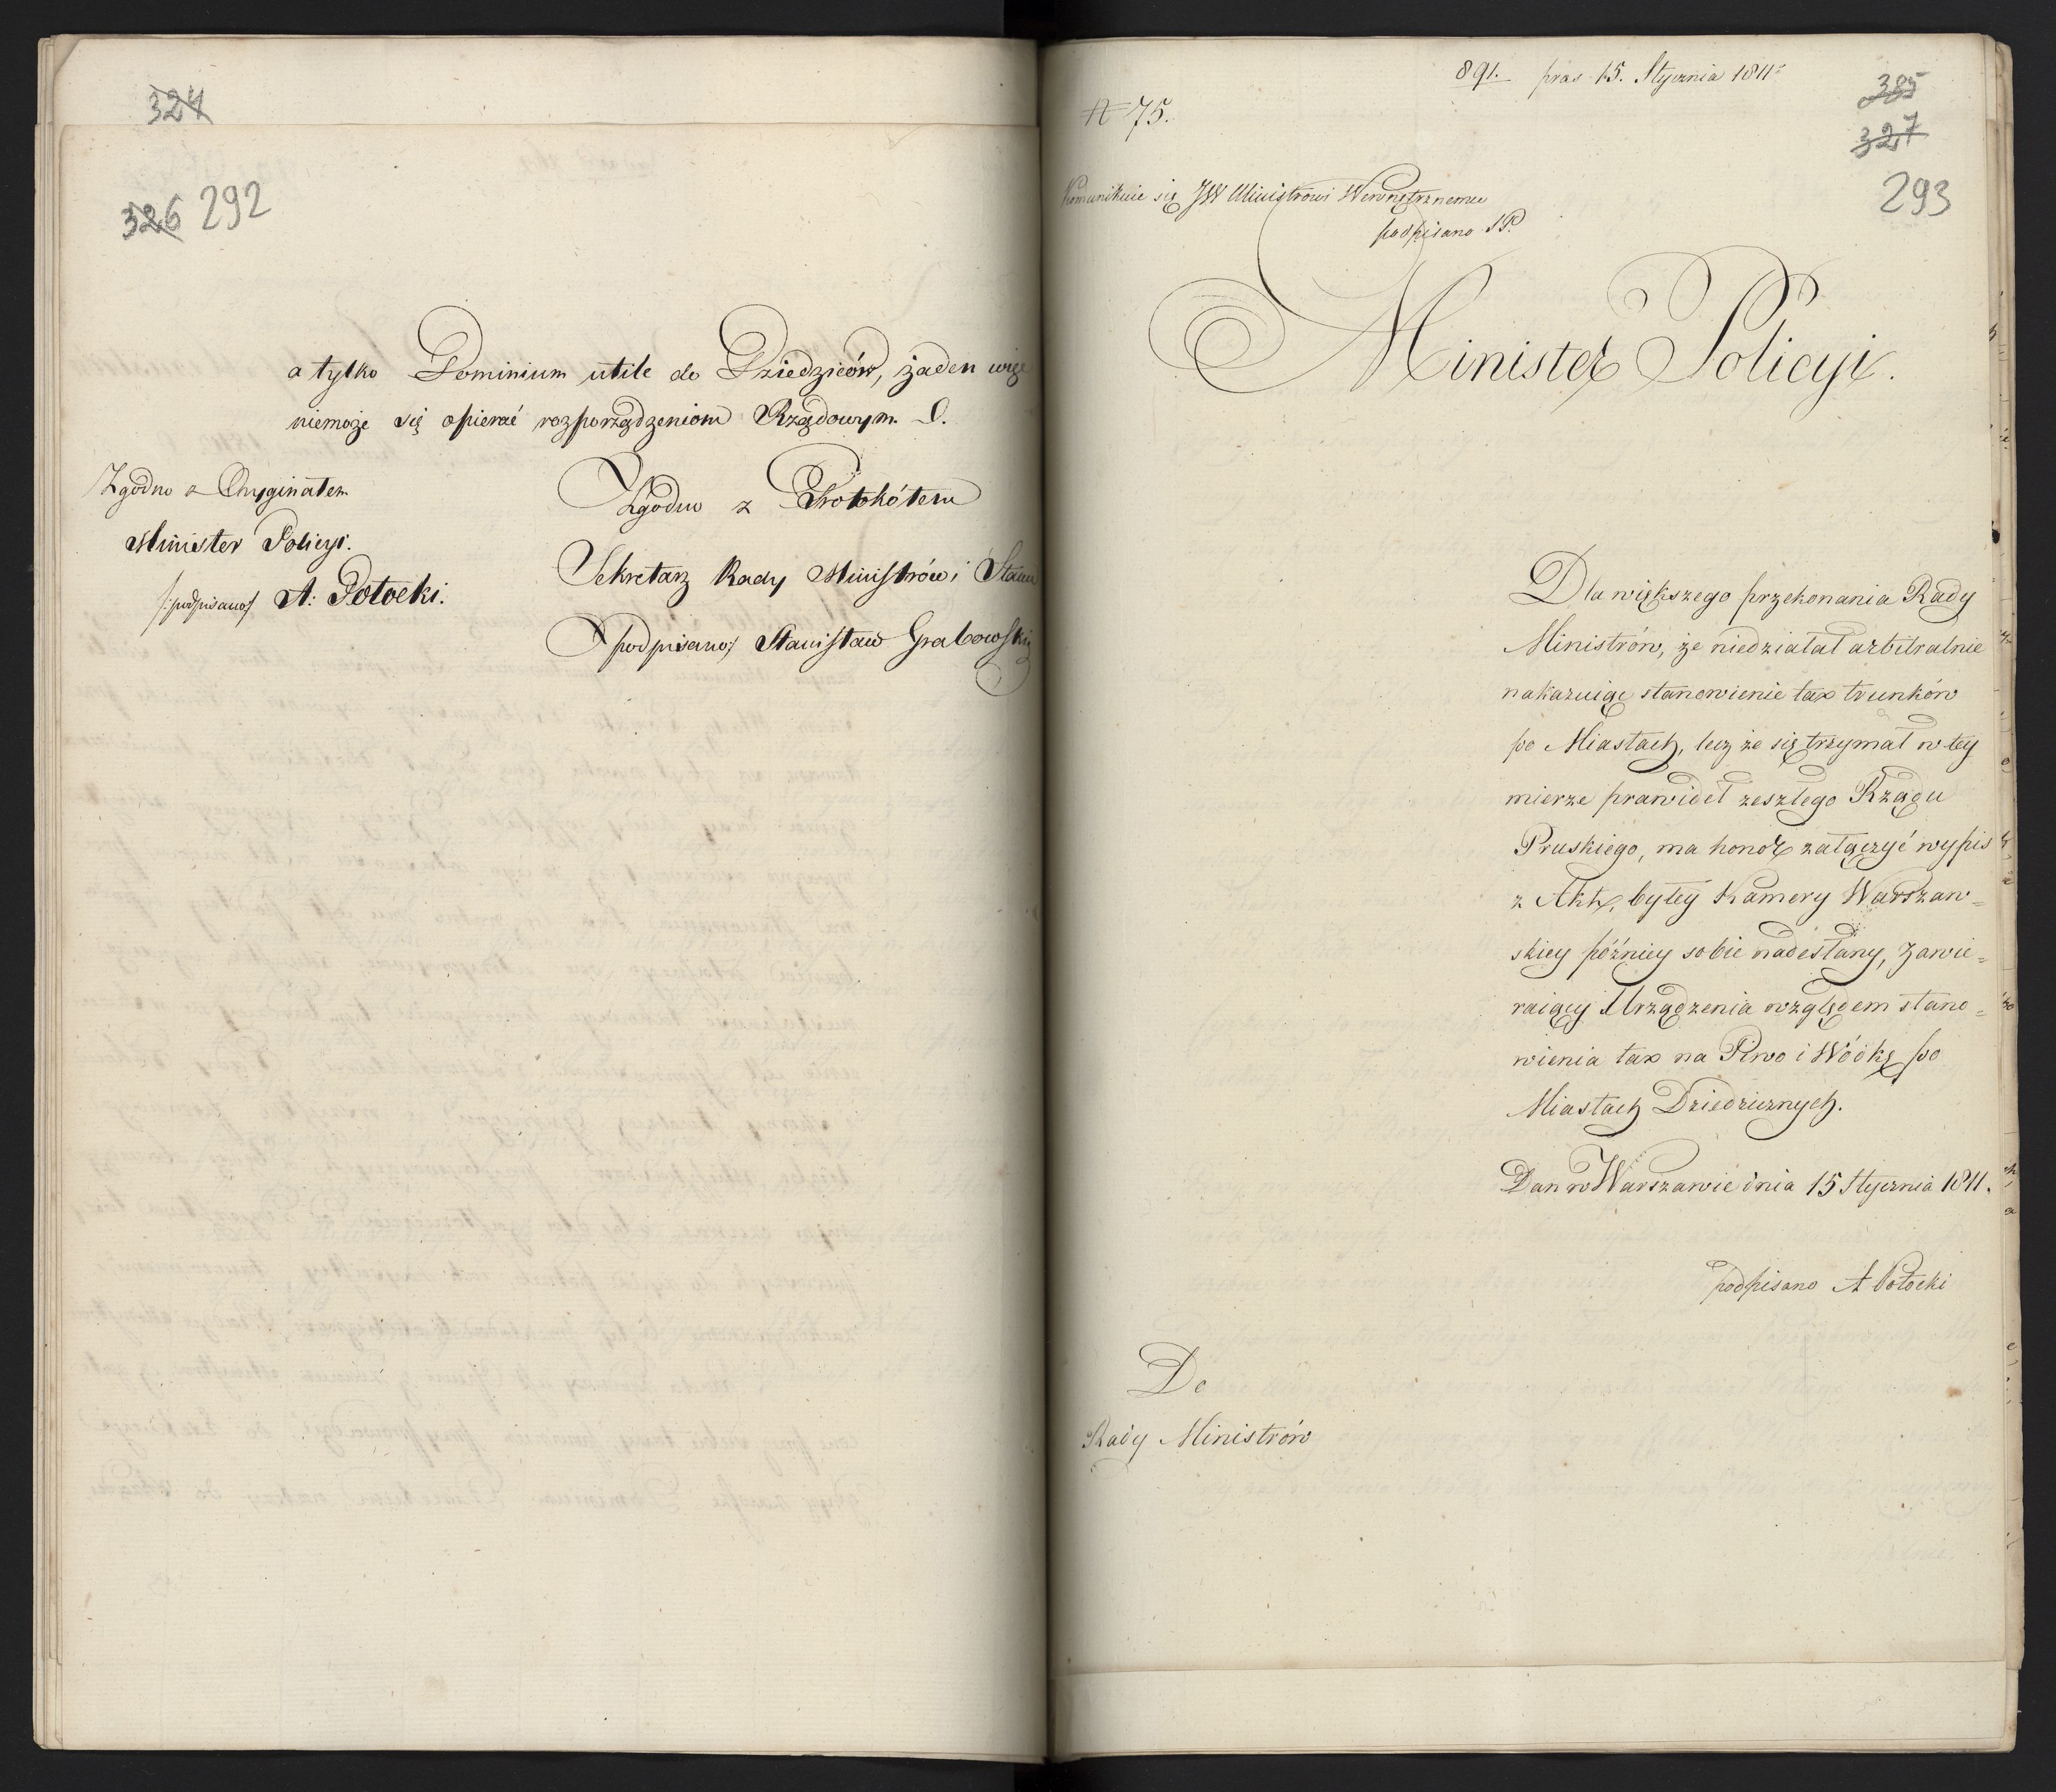 324
326 292
a tylko Dominium utile do Dziedziców, żaden więc
niemoże się opierać rozporządzeniom Rządowym.
Zgodno z Oryginałem
Minister Policyi.
/:podpisano/ A: Potocki.
Zgodno z Protokółem
Sekretarz Rady Ministrów i Stanu
podpisano/ Stanisław Grabowski
891. pras 15. Stycznia 1811
N 75.
385
327
293
Komunikuie się JW Ministrowi Wewnętrznemu
podpisano SP.
Minister Policyi.
Dla większego przekonania Rady
Ministrów, że niedziałał arbitralnie
nakazuiąc stanowienie tax trunków
po Miastach, lecz że się trzymał w tey
mierze prawideł zeszłego Rządu
Pruskiego, ma honor załączyć wypis
z Akt, byłey Kamery Warszaw=
skiey późniey sobie nadesłany, zawie=
raiący Urządzenia względem stano=
wienia tax na Piwo i Wódkę po
Miastach Dziedzicznych.
Dan w Warszawie dnia 15 Stycznia 1811.
podpisano A Potocki
Do
Rady Ministrów